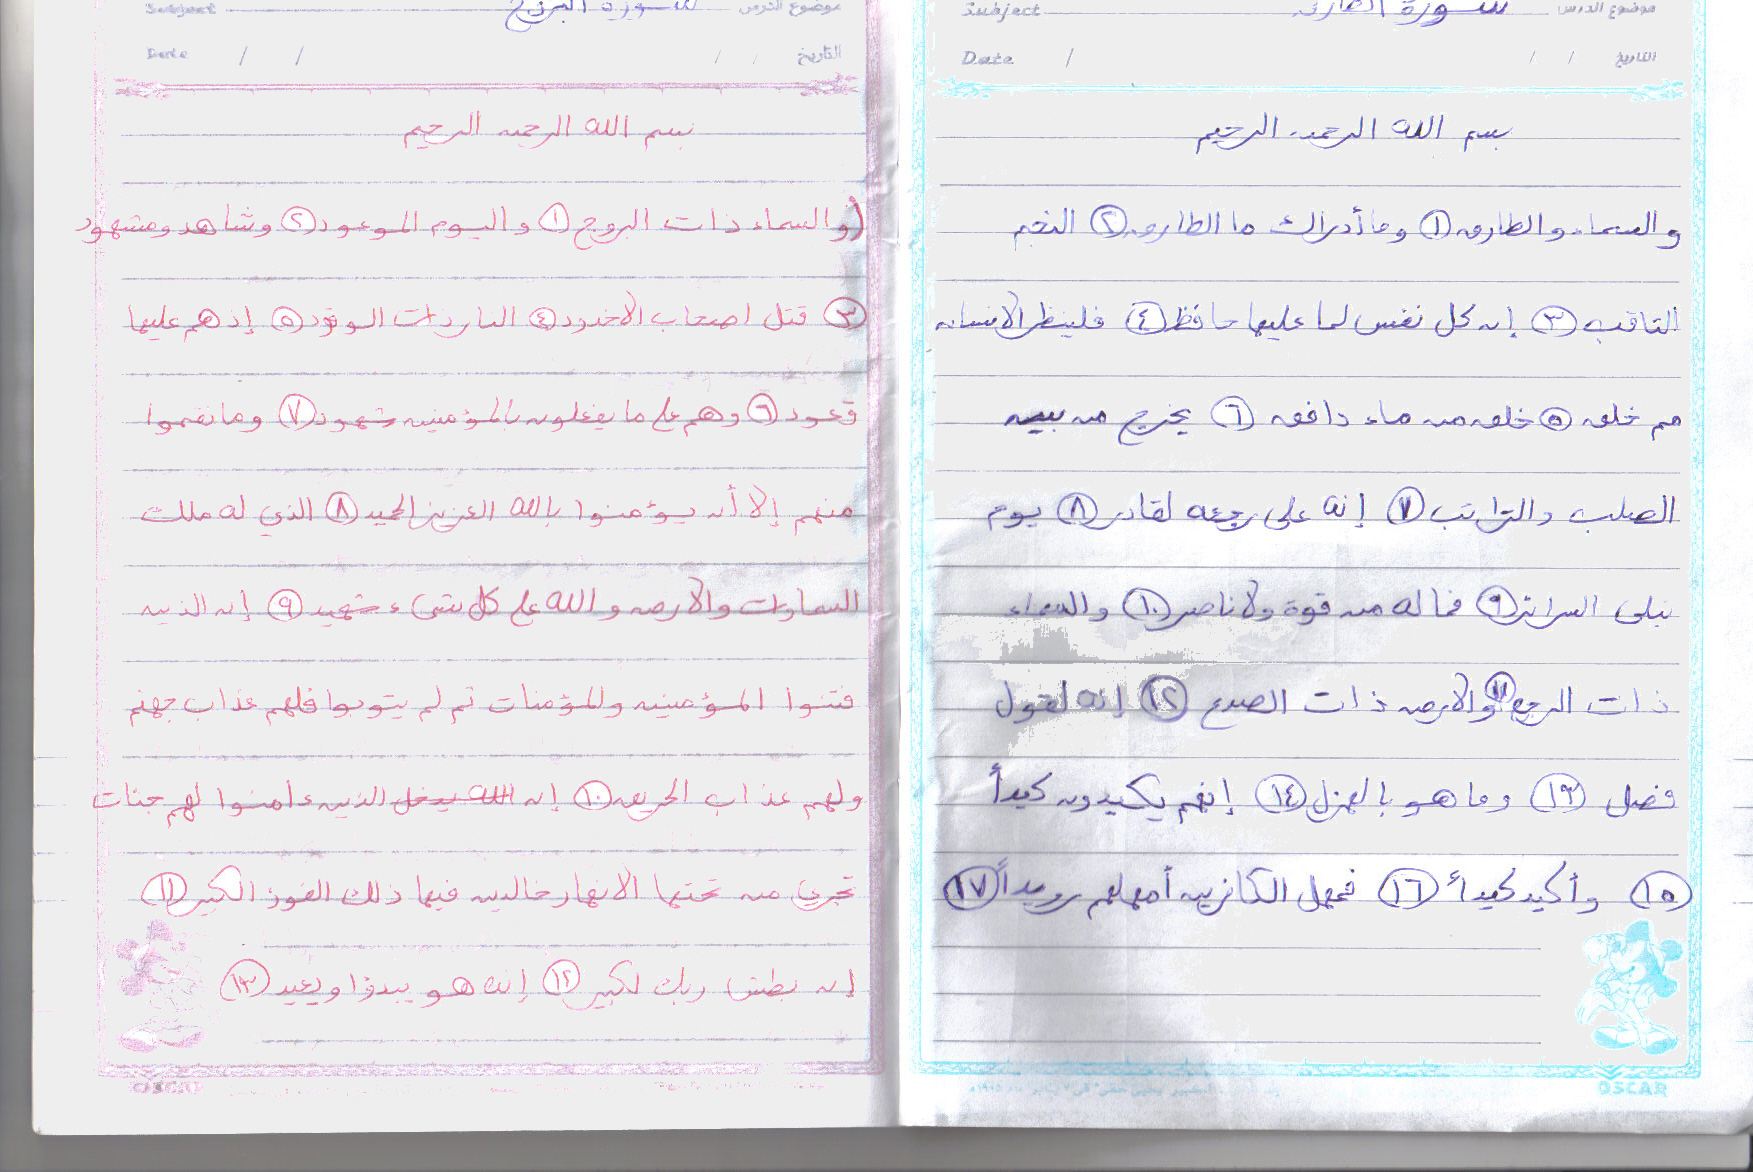 موضوع الدرس سورة الطارق Subject
التاريخ / / Date /
بسم الله الرحمن الرحيم
والسماء والطارق ١ وما أدراك ما الطارق ٢ النجم
الثاقب ٣ إن كل نفس لما عليها حافظ ٤ فلينظر الانسان
مم خلق ٥ خلق من ماء دافق ٦ يخرج من بين
الصلب والترائب ٧ إنه على رجعه لقادر ٨ يوم
تبلى السرائر ٩ فماله من قوة ولا ناصر ١٠ والسماء
ذات الرجع ١١ والارض ذات الصدع ١٢ إنه لقول
فصل ١٣ وما هو بالهزل ١٤ إنهم يكيدون كيداً
١٥ وأكيد كيداً ١٦ فمهل الكافرين أمهلهم رويداً ١٧
OSCAR
موضوع الدرس سورة البروج Subject
التاريخ / / Date / /
بسم الله الرحمن الرحيم
(والسماء ذات البروج ١ واليوم الموعود ٢ وشاهد ومشهود
٣ قتل اصحاب الاخدود ٤ النار ذات الوقود ٥ إذ هم عليها
قعود ٦ وهم على ما يفعلون بالمؤمنين شهود ٧ وما نقموا
منهم إلا أن يؤمنوا بالله العزيز الحميد ٨ الذي له ملك
السماوات والارض والله على كل شيء شهيد ٩ إن الذين
فتنوا المؤمنين والمؤمنات ثم لم يتوبوا فلهم عذاب جهنم
ولهم عذاب الحريق ١٠ إن الله يدخل الذين ءامنوا لهم جنات
تجري من تحتها الانهار خالدين فيها ذلك الفوز الكبير ١١
إن بطش ربك لكبير ١٢ إنه هو يبدؤا ويعيد ١٣
OSCAR